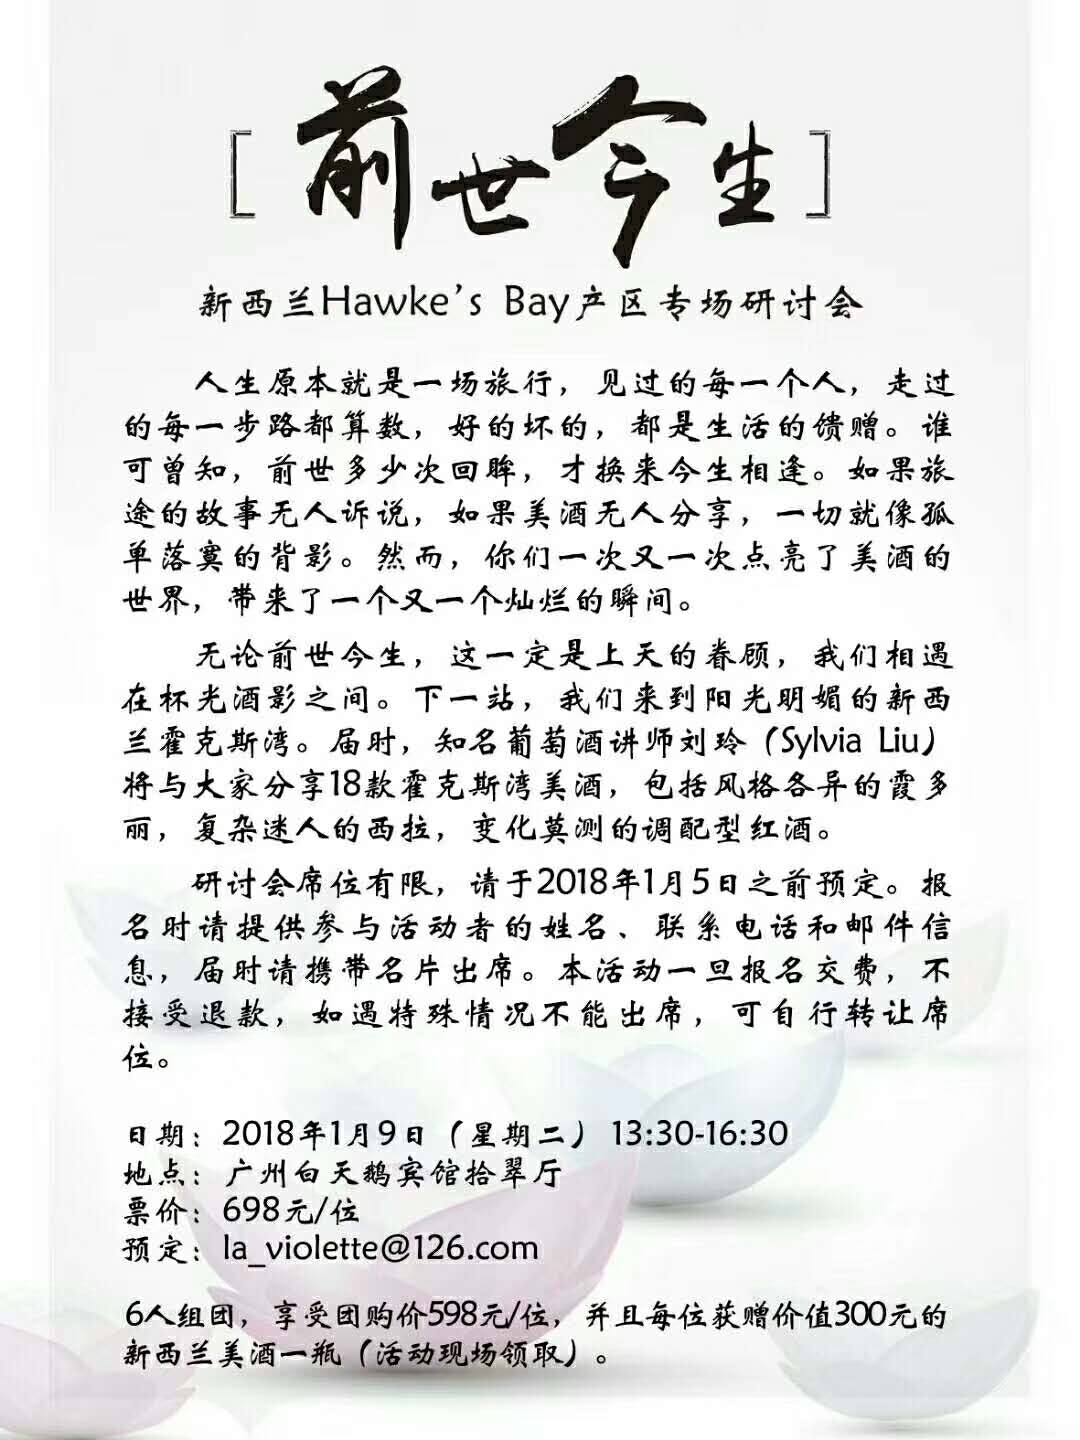 [前世今生]
新西兰Hawke's Bay产区专场研讨会
人生原本就是一场旅行，见过的每一个人，走过
的每一步路都算数，好的坏的，都是生活的馈赠。谁
可曾知，前世多少次回眸，才换来今生相逢。如果旅
途的故事无人诉说，如果美酒无人分享，一切就像孤
单落寞的背影。然而，你们一次又一次点亮了美酒的
世界，带来了一个又一个灿烂的瞬间。
无论前世今生，这一定是上天的眷顾，我们相遇
在杯光酒影之间。下一站，我们来到阳光明媚的新西
兰霍克斯湾。届时，知名葡萄酒讲师刘玲（Sylvia Liu）
将与大家分享18款霍克斯湾美酒，包括风格各异的霞多
丽，复杂迷人的西拉，变化莫测的调配型红酒。
研讨会席位有限，请于2018年1月5日之前预定。报
名时请提供参与活动者的姓名、联系电话和邮件信
息，届时请携带名片出席。本活动一旦报名交费，不
接受退款，如遇特殊情况不能出席，可自行转让席
位。
日期：2018年1月9日（星期二）13:30-16:30
地点：广州白天鹅宾馆拾翠厅
票价：698元/位
预定：la_violette@126.com
6人组团，享受团购价598元/位，并且每位获赠价值300元的
新西兰美酒一瓶（活动现场领取）。